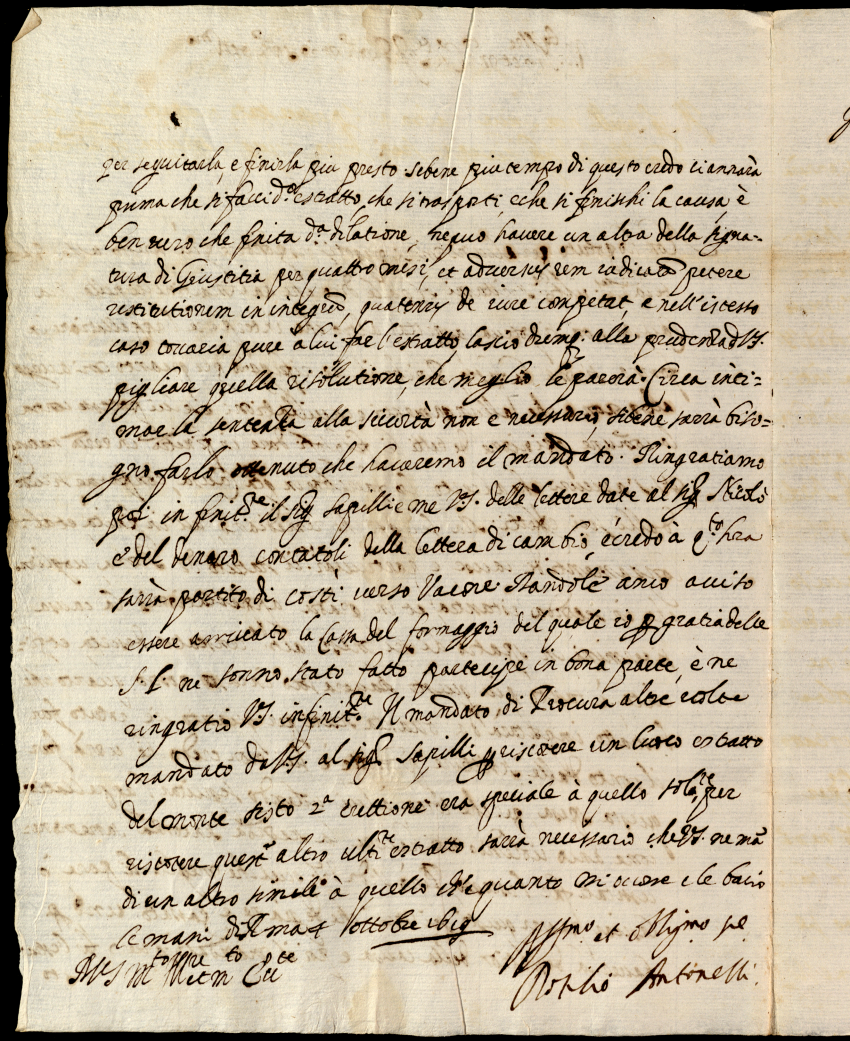 per sequitarla, e finirla piu presto sebene piu tempo di questo credo ci annarà
prima che si facci d.º estratto, che si trasporti, e che si finischi la causa, è
ben vero che finita d.ª dilatione, ne può havere un altra della signa-
tura di Giustitia per quattro mesi, et adversus rem iudicatā petere
restitutionem in integrū, quatenus de iure competat, e nell'istesso
caso toccaria pure à lui far l'estratto, lascio dremp.º alla prudenza di V.S.
pigliare quella risolutione, che meglio le parerà. Circa inti-
mar la sentenza alla sicurtà non e necessario, sibene sarrà biso-
gno farlo venuto che haveremo il mandato. Ringratiamo
poi infinit.te il Sig.r Sapilli e me V.S. delle lettere date al Sig.r Nicolò
e del denaro contatoli della lettera di cambio, e credo à q.sto hora
sarrà partito di costì verso
essere arrivato la Cassa del formaggio del quale io p gratia delle
S.L. ne sonno stato fatto partecipe in bona parte, è ne
ringratio V.S. infinit.te Il mandato di Procura altre volte
mandato da V.S. al Sig.r Sapilli p riscotere un luoco estratto
del monte sisto 2ª erettione era speciale à quello sola.te, per
riscotere quest' altro ult.te estratto sarrà necessario che V.S. ne mā
di un altro simile à quello ch'è quanto mi occore e le bacio
le mani di Rma 4 ottobre 1619
Aff.mo et obblig.mo se.
Antonelli.